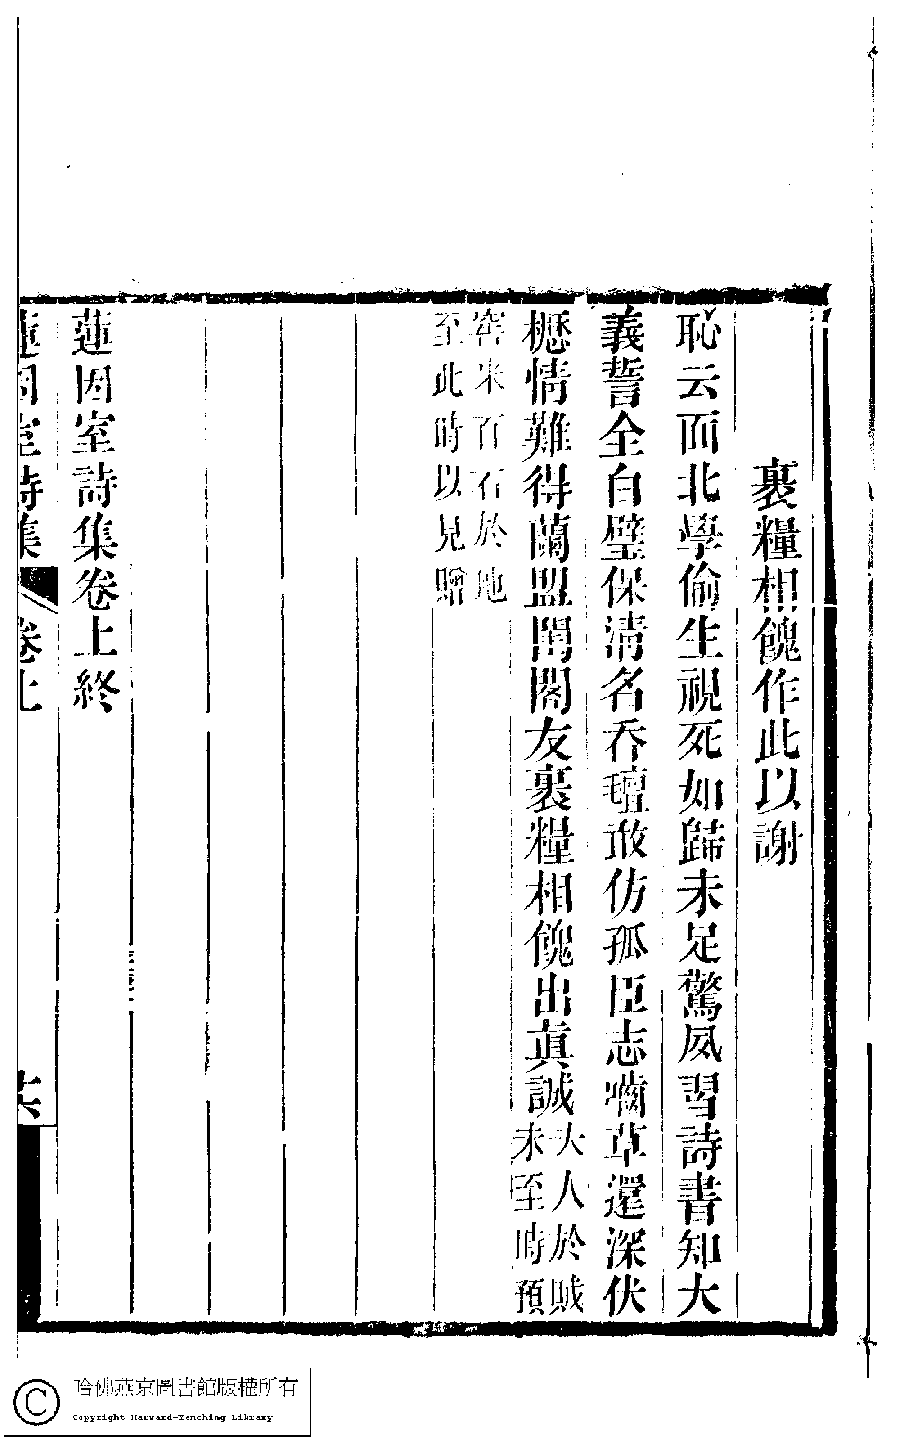 裹糧相餽作此以謝
恥云面北學偷生視死如歸未足驚夙習詩書知大
義誓全白璧保淸名吞氊敢仿孤臣志嚙草還深伏
櫪情難得蘭盟閨閣友裹糧相餽出眞誠大人於賊
未至時預
窖米百石於地
至此時以見贈
蓮因室詩集卷上終
蓮因室詩集 卷上 十六
哈佛燕京圖書館版權所有
Copyright Harvard-Yenching Library